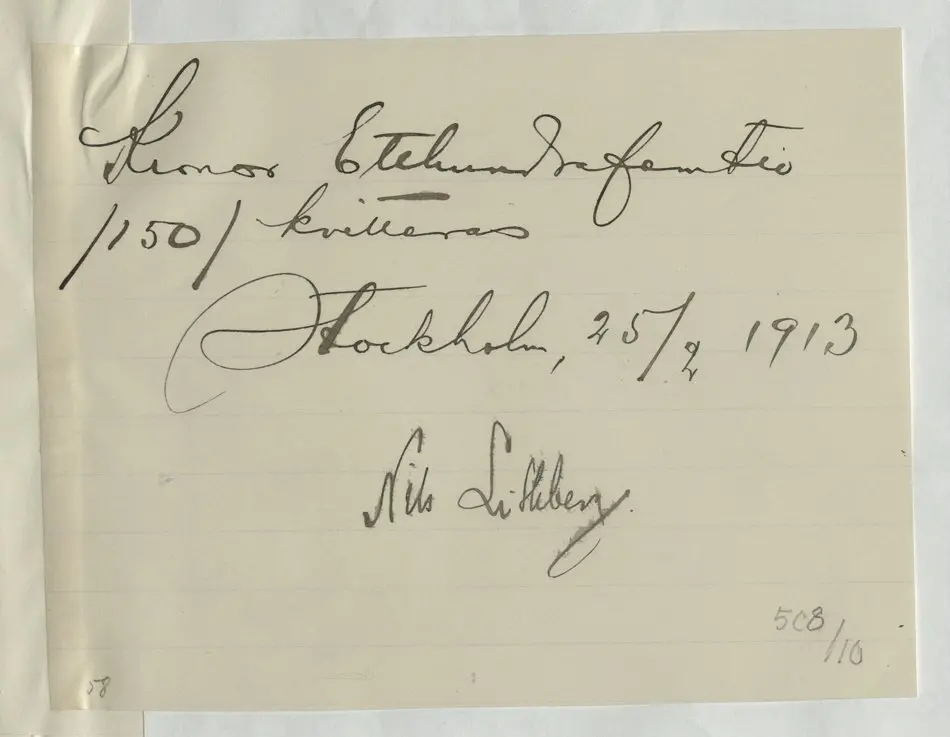 Kronor Etthundrafemtio
/150/ kvitteras
Stockholm, 25/2 1913
Nils Lithberg.
5C8/10
58